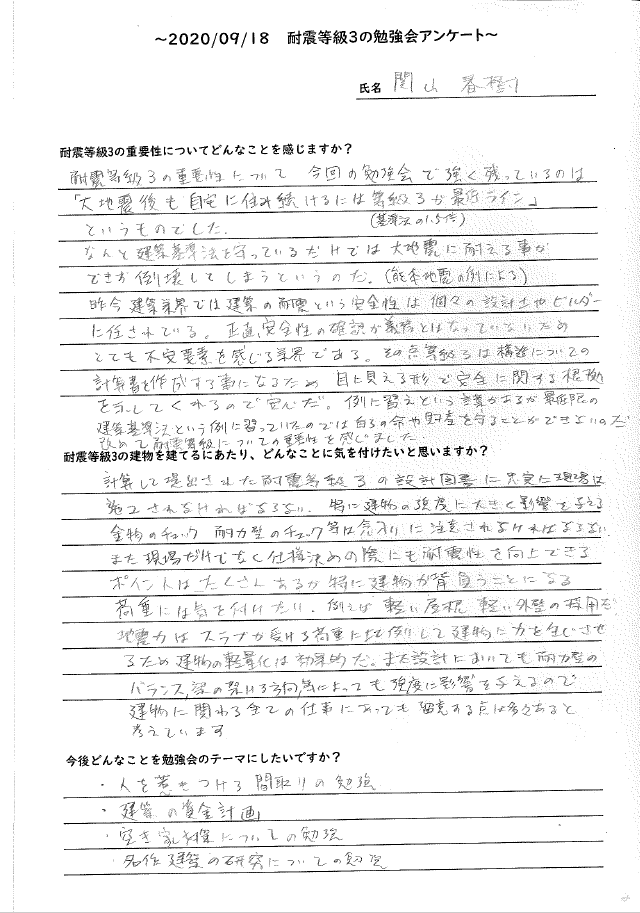 ~2020/09/18　耐震等級3の勉強会アンケート~
氏名　関山　春樹
耐震等級3の重要性についてどんなことを感じますか？
耐震等級3の重要性について　今回の勉強会で強く残っているのは
「大地震後も自宅に住み続けるには等級3が最低ライン」
(基準法の1.5倍)
というものでした。
なんと建築基準法を守っているだけでは大地震に耐える事が
できず倒壊してしまうというのだ。(熊本地震の例による)
昨今建築業界では建築の耐震という安全性は個々の設計士やビルダー
に任されている。正直、安全性の確認が義務とはなっていないため
とても不安要素を感じる業界である。その点等級3は構造についての
計算書を作成する事になるため　目に見える形で安全に関する根拠
を示してくれるので安心だ。例に習えという言葉があるが最低限の
建築基準法という例に習っていたのでは自らの命や財産を守ることができないのだ
改めて耐震等級についての重要性を感じました。
耐震等級3の建物を建てるにあたり、どんなことに気を付けたいと思いますか？
計算して提出された耐震等級3の設計図書に忠実に現場は
施工されなければならない。特に建物の強度に大きく影響を与える
金物のチェック　耐力壁のチェック等は念入りに注意されなければならない
また現場だけでなく仕様決めの際にも耐震性を向上できる
ポイントはたくさんあるが特に建物が背負うことになる
荷重には気を付けたい。例えば　軽い屋根　軽い外壁の採用だ
地震力はスラブが受ける荷重に比例して建物に力を生じさせ
るため建物の軽量化は効果的だ。また設計においても耐力壁の
バランス、梁の架ける方向、等によっても強度に影響を与えるので
建物に関わる全ての仕事にあっても留意する点は多々あると
考えています
今後どんなことを勉強会のテーマにしたいですか？
・人を惹きつける間取りの勉強
・建築の資金計画
・空き家対策についての勉強
・名作建築の研究についての勉強